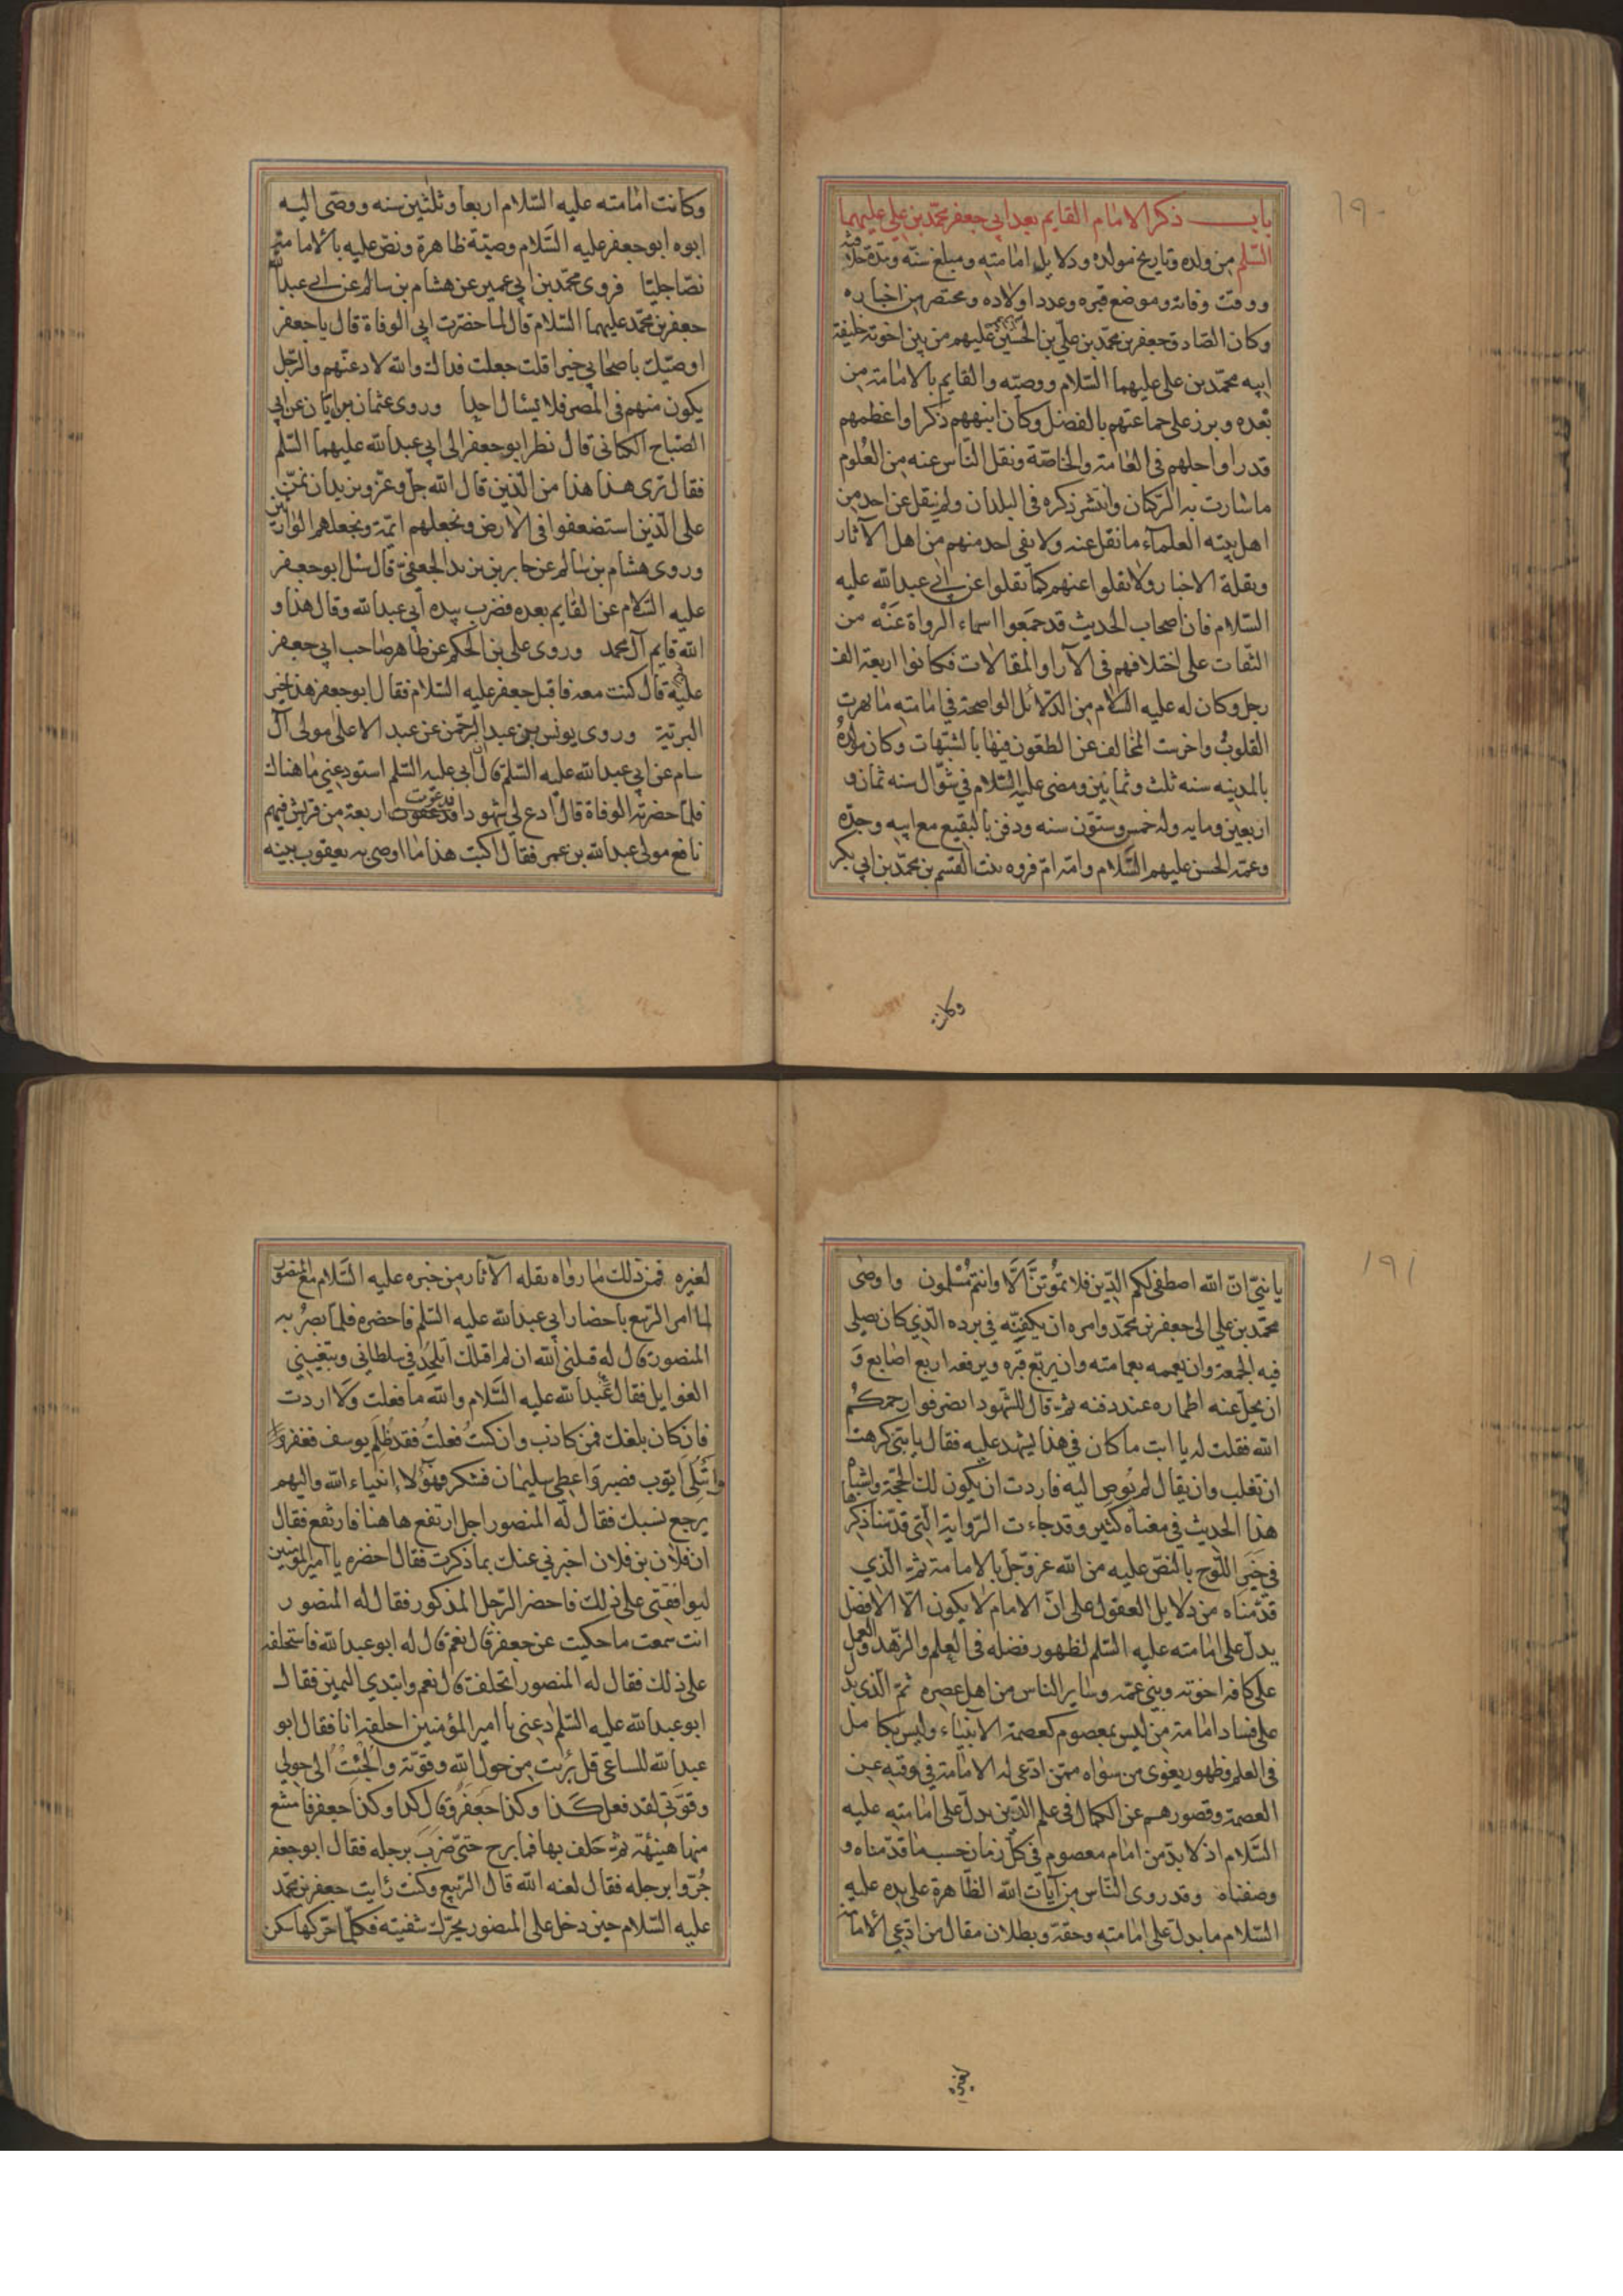 ١٩٠
باب ذكر الامام القايم بعد ابي جعفر محمد بن علي عليهما
السلم من ولده وتاريخ مولده ودلايل امامته ومبلغ سنه ومدة خلافته
ووقت وفاته وموضع قبره وعدد اولاده ومختصر من اخباره
وكان الصادق جعفر بن محمد بن علي بن الحسين عليهم من بين اخوته خليفة
ابيه محمد بن علي عليهما السلام ووصيه والقايم بالامامة من
بعده وبرز على جماعتهم بالفضل وكان انبههم ذكرا واعظمهم
قدرا واجلهم في العامة والخاصة ونقل الناس عنه من العلوم
ما سارت به الركبان وانتشر ذكره في البلدان ولم ينقل عن احد من
اهل بيته العلمآء ما نقل عنه ولا لقى احد منهم من اهل الآثار
ونقلة الاخبار ولا نقلوا عنهم كما نقلوا عن ابي عبد الله عليه
السلام فان اصحاب الحديث قد جمعوا اسماء الرواة عنه من
الثقات على اختلافهم في الآرا والمقالات فكانوا اربعة الف
رجل وكان له عليه السلام من الدلائل الواضحة في امامته ما بهرت
القلوب واخرست المخالف عن الطعون فيها بالشبهات وكان مولده
بالمدينه سنه ثلث وثمانين ومضى عليه السلام في شوال سنه ثمان و
اربعين ومايه وله خمس وستون سنه ودفن بالبقيع مع ابيه وجده
وعمه الحسن عليهم السلام وامه ام فروه بنت القسم بن محمد بن ابي بكر
وكانت
وكانت امامته عليه السلام اربعا وثلثين سنه ووصى اليه
ابوه ابو جعفر عليه السلام وصية ظاهرة ونص عليه بالامامة
نصا جليا فروى محمد بن ابي عمير عن هشام بن سالم عن ابي عبد الله
جعفر بن محمد عليهما السلام قال لما حضرت ابي الوفاة قال يا جعفر
اوصيك باصحابي خيرا قلت جعلت فداك والله لادعنهم والرجل
يكون منهم في المصر فلا يسئال احدا وروى عثمان بن ابان عن ابي
الصباح الكناني قال نظر ابو جعفر الى ابي عبد الله عليهما السلم
فقال ترى هذا هذا من الذين قال الله جل وعز ونريد ان نمن
على الذين استضعفوا في الارض ونجعلهم ائمة ونجعلهم الوارثين
وروى هشام بن سالم عن جابر بن يزيد الجعفي قال سئل ابو جعفر
عليه السلام عن القايم بعده فضرب بيده ابي عبد الله وقال هذا و
الله قايم آل محمد وروى علي بن الحكم عن طاهر صاحب ابي جعفر
عليه قال كنت معه فاقبل جعفر عليه السلام فقال ابو جعفر هذا خير
البرية وروى يونس بن عبد الرحمن عن عبد الاعلى مولى آل
سام عن ابي عبد الله عليه السلم قال ابي عليه السلم استودعني ما هناك
فلما حضرته الوفاة قال ادع لي شهودا فدعوت اربعة من قريش فيهم
نافع مولى عبد الله بن عمر فقال اكبت هذا ما اوصى به يعقوب بنيه
١٩١
يا بني ان الله اصطفى لكم الدين فلا تموتن الا وانتم مسلمون واوصى
محمد بن علي الى جعفر بن محمد وامره ان يكفنه في برده الذي كان يصلي
فيه الجمعة وان يعممه بعمامته وان يربع قبره ويرفعه اربع اصابع و
ان يحل عنه اطماره عند دفنه ثم قال للشهود انصرفوا رحمكم
الله فقلت له يا ابت ما كان في هذا يشهد عليه فقال يا بني كرهت
ان تغلب وان يقال لم يوص اليه فاردت ان يكون لك الحجة واشباه
هذا الحديث في معناه كثير وقد جاءت الرواية التي قدمنا ذكرها
في خبر اللوح بالنص عليه من الله عز وجل بالامامة ثم الذي
قدمناه من دلايل العقول على ان الامام لا يكون الا الافضل
يدل على امامته عليه السلم لظهور فضله في العلم والزهد والعمل
على كافه اخوته وبني عمه وساير الناس من اهل عصره ثم الذي يدل
على فساد امامة من ليس بمعصوم كعصمة الانبياء وليس بكامل
في العلم فظهور بعوى من سواه ممن ادعى له الامامة في وقته عن
العصمة وقصورهم عن الكمال في علم الدين يدل على امامته عليه
السلام اذ لا بد من امام معصوم في كل زمان حسب ما قدمناه و
وصفناه وقد روى الناس من آيات الله الظاهرة على يده عليه
السلام ما يدل على امامته وحقه وبطلان مقال من ادعى الامامة
لغيره
لغيره فمن ذلك ما رواه نقله الآثار من خبره عليه السلام مع المنصور
لما امر الربيع باحضار ابي عبد الله عليه السلم فاحضره فلما بصر به
المنصور قال له قتلني الله ان لم اقتلك اتلحد في سلطاني وتبتغيني
الغوايل فقال عبد الله عليه السلام والله ما فعلت ولا اردت
فان كان بلغك فمن كاذب وان كنت فعلت فقد ظلم يوسف فغفر
وابتلى ايوب فصبر واعطي سليمان فشكر فهؤلاء انبياء الله واليهم
يرجع نسبك فقال له المنصور اجل ارتفع هاهنا فارتفع فقال
ان فلان بن فلان اخبرني عنك بما ذكرت فقال احضره يا امير المؤمنين
ليوافقني على ذلك فاحضر الرجل المذكور فقال له المنصور
انت سمعت ما حكيت عن جعفر قال نعم قال له ابو عبد الله فاستحلفه
على ذلك فقال له المنصور اتحلف قال نعم وابتدي اليمين فقال
ابو عبد الله عليه السلم دعني يا امير المؤمنين احلفه انا فقال ابو
عبد الله للساعي قل برئت من حول الله وقوته والجئت الى حولي
وقوتي لقد فعل كذا وكذا جعفر وقال كذا وكذا جعفر فامتنع
منها هنيئة ثم حلف بها فما برح حتى ضرب برجله فقال ابو جعفر
جروا برجله فقال لعنه الله قال الربيع وكنت رايت جعفر بن محمد
عليه السلام حين دخل على المنصور يحرك شفتيه فكلما حركها سكن